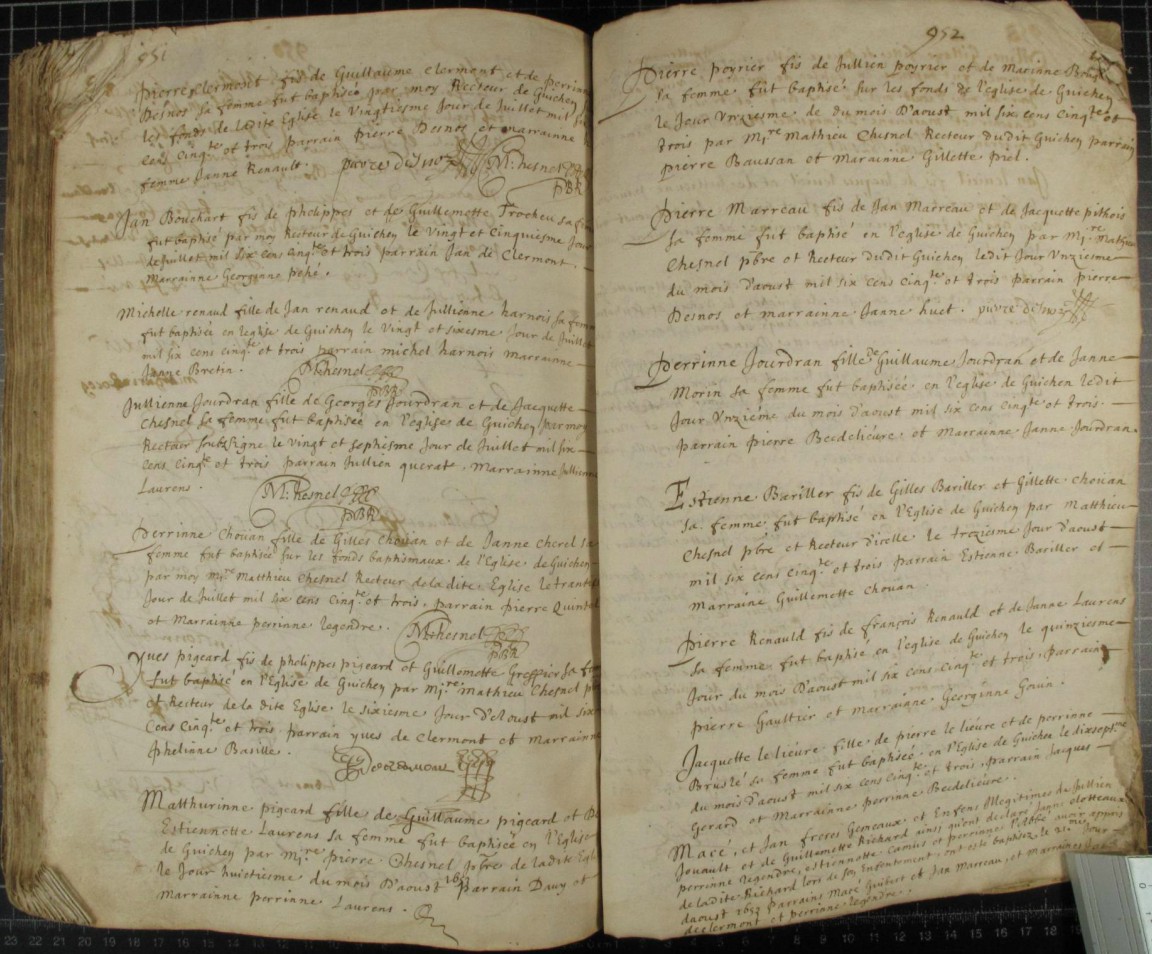 951
Pierre Clermont fis de Guillaume Clermont et de perrin
Desnos sa femme fut baphisé par moy Recteur de Guichen
les fonds de ladite Eglise le vingtiesme Jour de Juillet mil
cens cinq.te et trois parrain pierre Desnos et marrainne
femme Janne Renault. M: hesnel
PBR
Jan Bouchart fis de phelippes et de Guillemette Trocheu sa
fut baphisé par moy Recteur de Guichen le vingt et Cinquiesme Jour
de Juillet mil six cens cinq.te et trois parrain Jan de Clermont.
Marrainne Georginne
Michelle renaud fille de Jan renaud et de Jullienne harnois sa fem
fut baphisée en leglise de Guichen le vingt et sixiesme Jour de Juillet
mil six cens cinq.te et trois parrain michel harnois marrainne
Janne Bretin. M:hesnel
PBR
Jullienne Jourdran fille de Georges Jourdran et de Jacquette
Chesnel sa femme fut baphisée en l'eglise de Guichen par moy
Recteur soubzsigne le vingt et sephiesme Jour de Juillet mil six
cens cinq.te et trois parrain Jullien querate, Marrainne Jullien
Laurens. M: hesnel
PBR
Perrinne Chouan fille de Gilles Chouan et de Janne cherel sa
femme fut baphisée sur les fonds baphismaux de l'Eglise de Guichen
par moy M.re Matthieu Chesnel Recteur dela dite Eglise le trante
Jour de Juillet mil six cens Cinq.te et trois, parrain pierre Quin
et Marrainne perrinne legendre. M:hesnel
PBR
Yves pigeard fis de phelippes pigeard et Guillemette Greffier sa fe
fut baphisé en l'Eglise de Guichen par M.re Mathieu Chesnel p
et Recteur de la dite Eglise le sixiesme Jour d'Aoust mil six
Cens Cinq.te et trois parrain yves de Clermont et marrainn
phelinne Basille.
Matthurinne pigeard fille de Guillaume pigeard et De
Estiennette Laurens sa femme fut baphiseë en l'Eglise
de Guichen par M.re pierre Chesnel pbre de ladite Egli
le Jour huictiesme du mois D'aoust 1653 parrain Davy et
Marrainne perrinne Laurens.
952
Pierre poyrier fis de Jullien poyrier et de Marianne
sa femme fut baphisé sur les fonds de l'eglise de Guichen
le Jour Vnziesme de du mois D'aoust mil six cens Cinq.te et
trois par M.re Mathieu Chesnel Recteur dudit Guichen parrain
pierre Baussan et Marainne Gillette piel.
Pierre Marreau fis de Jan Marreau et de Jacquette pithois
sa femme fut baphisé en l'eglise de Guichen par M.re Mathieu
Chesnel pbre et Recteur dudit Guichen ledit Jour Vnziesme
du mois d'aoust mil six cens cinq.te et trois parrain pierre
Desnos et marrainne Janne huet.
Perrinne Jourdran fille de Guillaume Jourdran et de Janne
Morin sa femme fut baphisée en l'eglise de Guichen ledit
Jour Vnziéme du mois d'aoust mil six cens cinq.te et trois.
parrain pierre Bedelieure et Marrainne Janne Jourdran
Estienne Bariller fis de Gilles Bariller et Gillette chouan
sa femme fut baphisé en l'Eglise de Guichen par Matthieu
Chesnel pbre et Recteur dicelle le trezieme Jour d'aoust
mil six cens Cinq.te et trois parrain Estienne Bariller et
Marraine Guillemette chouan
Pierre Renauld fis de françois Renauld et de Janne Laurens
sa femme fut baphisé en l'eglise de Guichen le quinziesme
Jour du mois D'aoust mil six cens Cinq.te et trois, parrain
pierre Gaultier et Marraiane Georginne Gouin.
Jacquette le lieure fille de pierre le lieure et de perrinne
Brusté sa femme fut baphisée en l'Eglise de Guichen le dixsept.me
du mois d'aoust mil six cens cinq.te et trois, parrain Jacques
Gerard et Marrainne perrinne Bedelieure.
Macé, et Jan freres Gemeaux et Enfens Illegitimes de Jullien
Jouault et de Guillemette Richard ainsi qu'ont declaré
perrinne legendre, estiennette et perrinne l'abbé
de ladite Richard lors de son Enfentement, ont esté baphisez le 21.me Jour
daoust 1653 parrains Macé Guibert et Jan Marreau, et Marraines
de clermont et perrinne legendre.